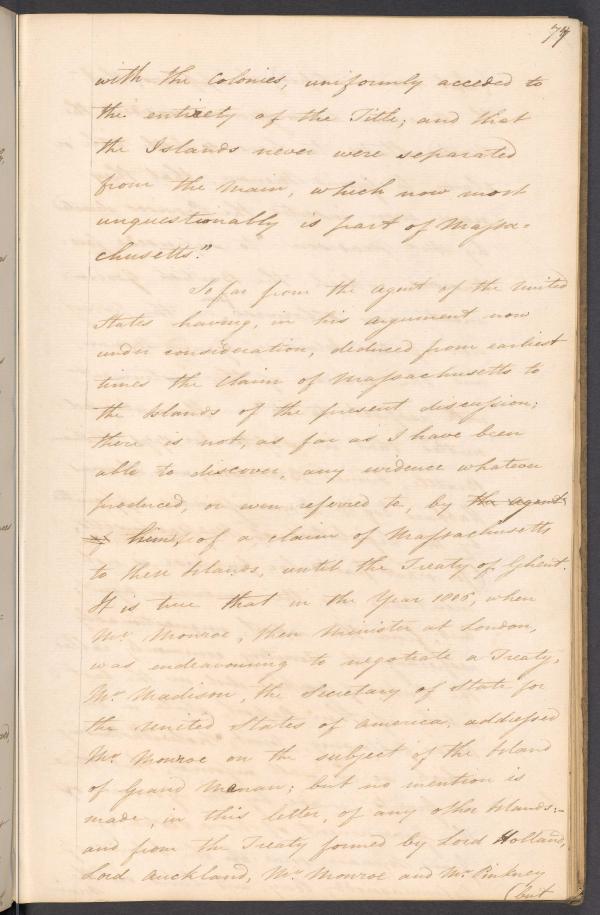 77
with the Colonies, uniformly acceded to
the entirety of the Title; and that
the Islands never were separated
from the Main, which now most
unquestionably is part of Massa-
chusetts."
So far from the Agent of the United
States having, in his Argument now
under consideration, deduced from earliest
times the Claim of Massachusetts to
the Islands of the present discussion;
there is not, as far as I have been
able to discover, any evidence whatever
produced, or even referred to, by the agent
him, of a claim of Massachusetts
to these Islands, until the Treaty of Ghent.
It is true that in the Year 1806, when
Mr Monroe, then Minister at London,
was endeavouring to negotiate a Treaty,
Mr Madison, the Secretary of State for
the United States of America, addressed
Mr Monroe on the subject of the Island
of Grand Menan; but no mention is
made, in this letter, of any other Islands:-
and from the Treaty formed by Lord Holland,
Lord Auckland, Mr Monroe and Mr Pinkney
(but